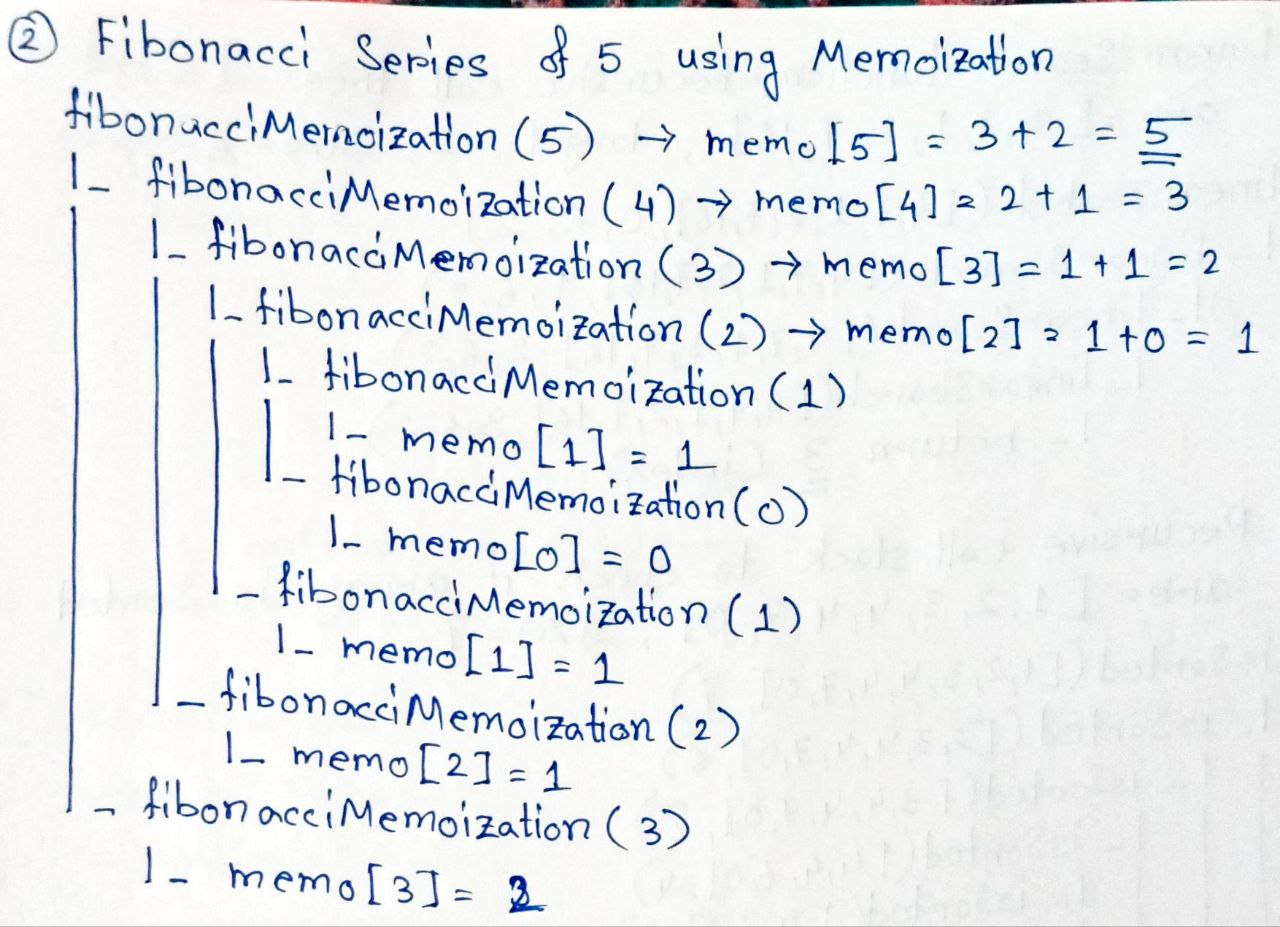 ② Fibonacci Series of 5 using Memoization
fibonacciMemoization (5) → memo[5] = 3 + 2 = 5
|_ fibonacciMemoization (4) → memo[4] = 2 + 1 = 3
|_ fibonacciMemoization (3) → memo[3] = 1 + 1 = 2
|_ fibonacciMemoization (2) → memo[2] = 1 + 0 = 1
|_ fibonacciMemoization (1)
|_ memo [1] = 1
|_ fibonacciMemoization (0)
|_ memo[0] = 0
|_ fibonacciMemoization (1)
|_ memo[1] = 1
|_ fibonacciMemoization (2)
|_ memo[2] = 1
|_ fibonacciMemoization (3)
|_ memo[3] = 2